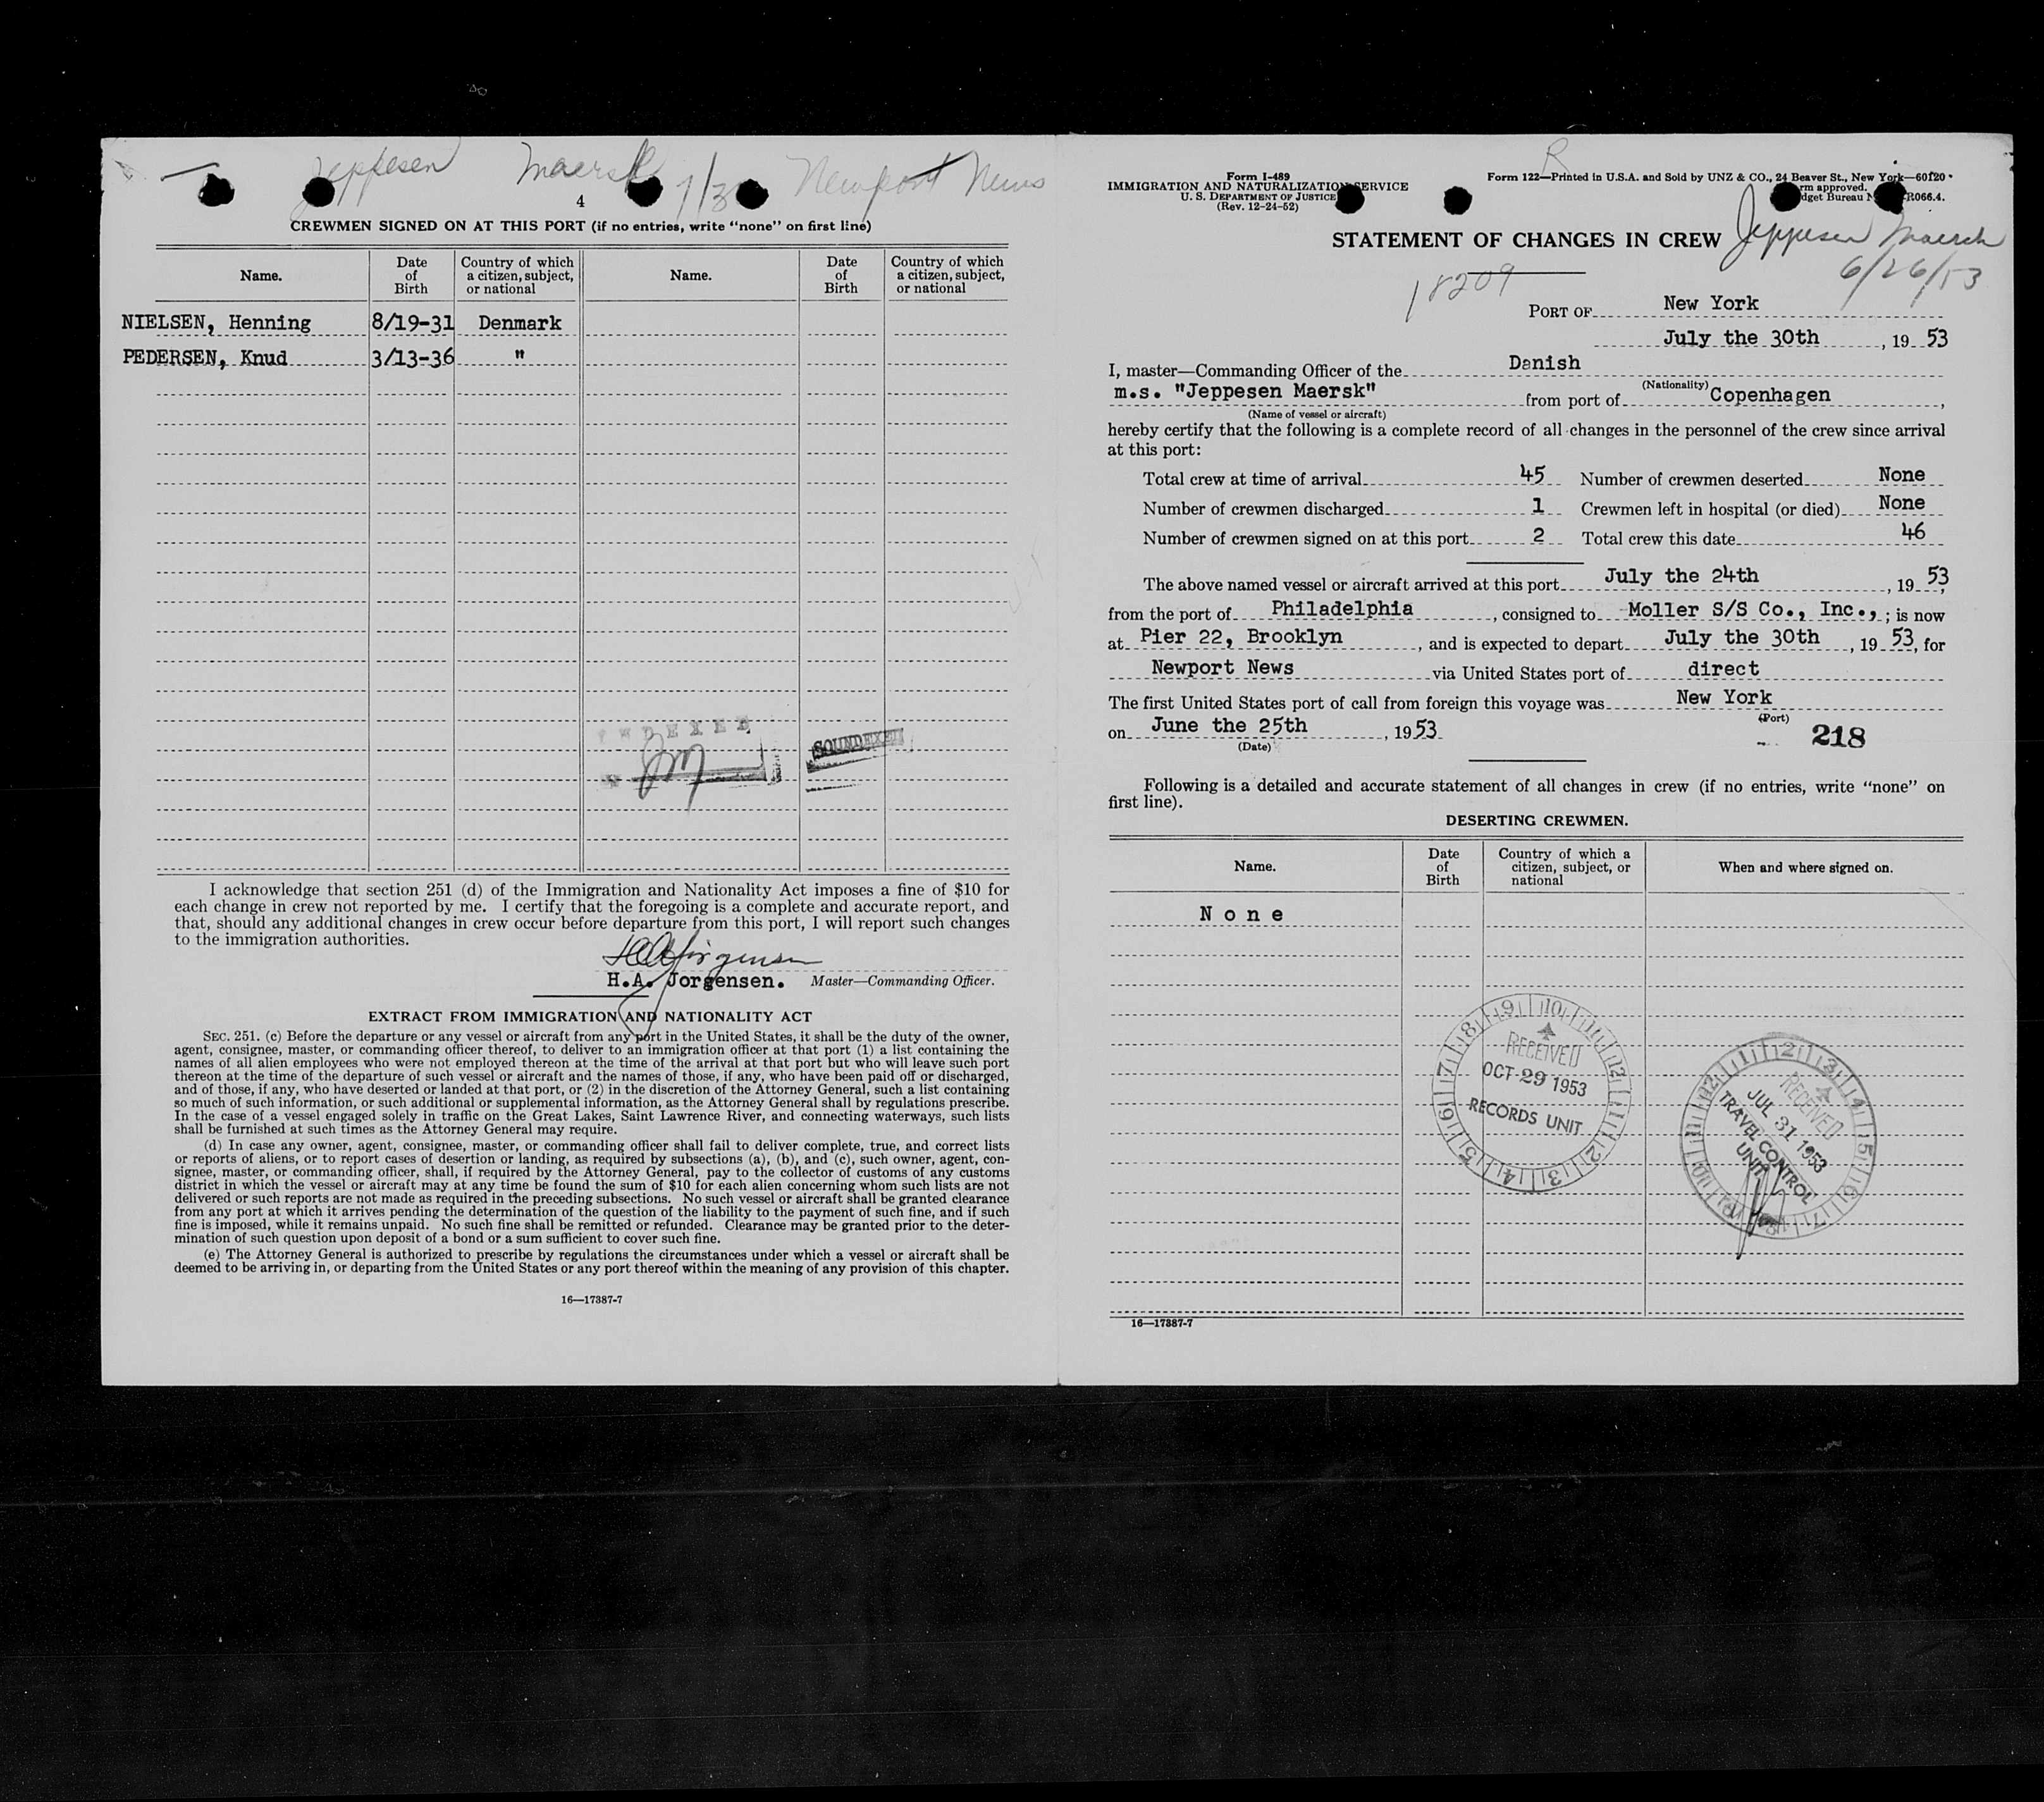 Jeppesen Maersk 7/30 Newport News
4
CREWMEN SIGNED ON AT THIS PORT (if no entries, write "none" on first line)
Name. Date of Birth Country of which a citizen, subject, or national Name. Date of Birth Country of which a citizen, subject, or national
NIELSEN, Henning 8/19-31 Denmark
PEDERSEN, Knud 3/13-36 "
INDEXED
SOUNDEXED
I acknowledge that section 251 (d) of the Immigration and Nationality Act imposes a fine of $10 for
each change in crew not reported by me. I certify that the foregoing is a complete and accurate report, and
that, should any additional changes in crew occur before departure from this port, I will report such changes
to the immigration authorities.
HAJörgensen
H.A. Jorgensen. Master—Commanding Officer.
EXTRACT FROM IMMIGRATION AND NATIONALITY ACT
SEC. 251. (c) Before the departure or any vessel or aircraft from any port in the United States, it shall be the duty of the owner,
agent, consignee, master, or commanding officer thereof, to deliver to an immigration officer at that port (1) a list containing the
names of all alien employees who were not employed thereon at the time of the arrival at that port but who will leave such port
thereon at the time of the departure of such vessel or aircraft and the names of those, if any, who have been paid off or discharged,
and of those, if any, who have deserted or landed at that port, or (2) in the discretion of the Attorney General, such a list containing
so much of such information, or such additional or supplemental information, as the Attorney General shall by regulations prescribe.
In the case of a vessel engaged solely in traffic on the Great Lakes, Saint Lawrence River, and connecting waterways, such lists
shall be furnished at such times as the Attorney General may require.
(d) In case any owner, agent, consignee, master, or commanding officer shall fail to deliver complete, true, and correct lists
or reports of aliens, or to report cases of desertion or landing, as required by subsections (a), (b), and (c), such owner, agent, con-
signee, master, or commanding officer, shall, if required by the Attorney General, pay to the collector of customs of any customs
district in which the vessel or aircraft may at any time be found the sum of $10 for each alien concerning whom such lists are not
delivered or such reports are not made as required in the preceding subsections. No such vessel or aircraft shall be granted clearance
from any port at which it arrives pending the determination of the question of the liability to the payment of such fine, and if such
fine is imposed, while it remains unpaid. No such fine shall be remitted or refunded. Clearance may be granted prior to the deter-
mination of such question upon deposit of a bond or a sum sufficient to cover such fine.
(e) The Attorney General is authorized to prescribe by regulations the circumstances under which a vessel or aircraft shall be
deemed to be arriving in, or departing from the United States or any port thereof within the meaning of any provision of this chapter.
16—17387-7
R
Form I-489
IMMIGRATION AND NATURALIZATION SERVICE
U. S. DEPARTMENT OF JUSTICE
(Rev. 12-24-52)
Form 122—Printed in U.S.A. and Sold by UNZ & CO., 24 Beaver St., New York—60120
rm approved.
dget Bureau N R066.4.
STATEMENT OF CHANGES IN CREW Jeppesen Maersk
6/26/53
18209
PORT OF New York
July the 30th, 1953
I, master—Commanding Officer of the Danish
(Nationality)
m.s. "Jeppesen Maersk" from port of Copenhagen,
(Name of vessel or aircraft)
hereby certify that the following is a complete record of all changes in the personnel of the crew since arrival
at this port:
Total crew at time of arrival 45 Number of crewmen deserted None
Number of crewmen discharged 1 Crewmen left in hospital (or died) None
Number of crewmen signed on at this port 2 Total crew this date 46
The above named vessel or aircraft arrived at this port July the 24th, 1953,
from the port of Philadelphia, consigned to Moller S/S Co., Inc.,; is now
at Pier 22, Brooklyn, and is expected to depart July the 30th, 1953, for
Newport News via United States port of direct
The first United States port of call from foreign this voyage was New York
(Port)
on June the 25th, 1953
(Date)
218
Following is a detailed and accurate statement of all changes in crew (if no entries, write "none" on
first line).
DESERTING CREWMEN.
Name. Date of Birth Country of which a citizen, subject, or national When and where signed on.
None
RECEIVED
OCT 29 1953
RECORDS UNIT
RECEIVED
JUL 31 1953
TRAVEL CONTROL
UNIT
16—17387-7